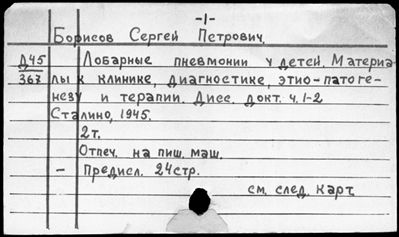 -1-
Борисов Сергей Петрович.
Д45 Лобарные пневмонии у детей. Материа-
367 лы к клинике, диагностике, этио-патоге-
незу и терапии. Дисс. докт. ч.1-2
Сталино, 1945.
2т.
Отпеч. на пиш. маш.
- Предисл. 24стр.
см. след. карт.